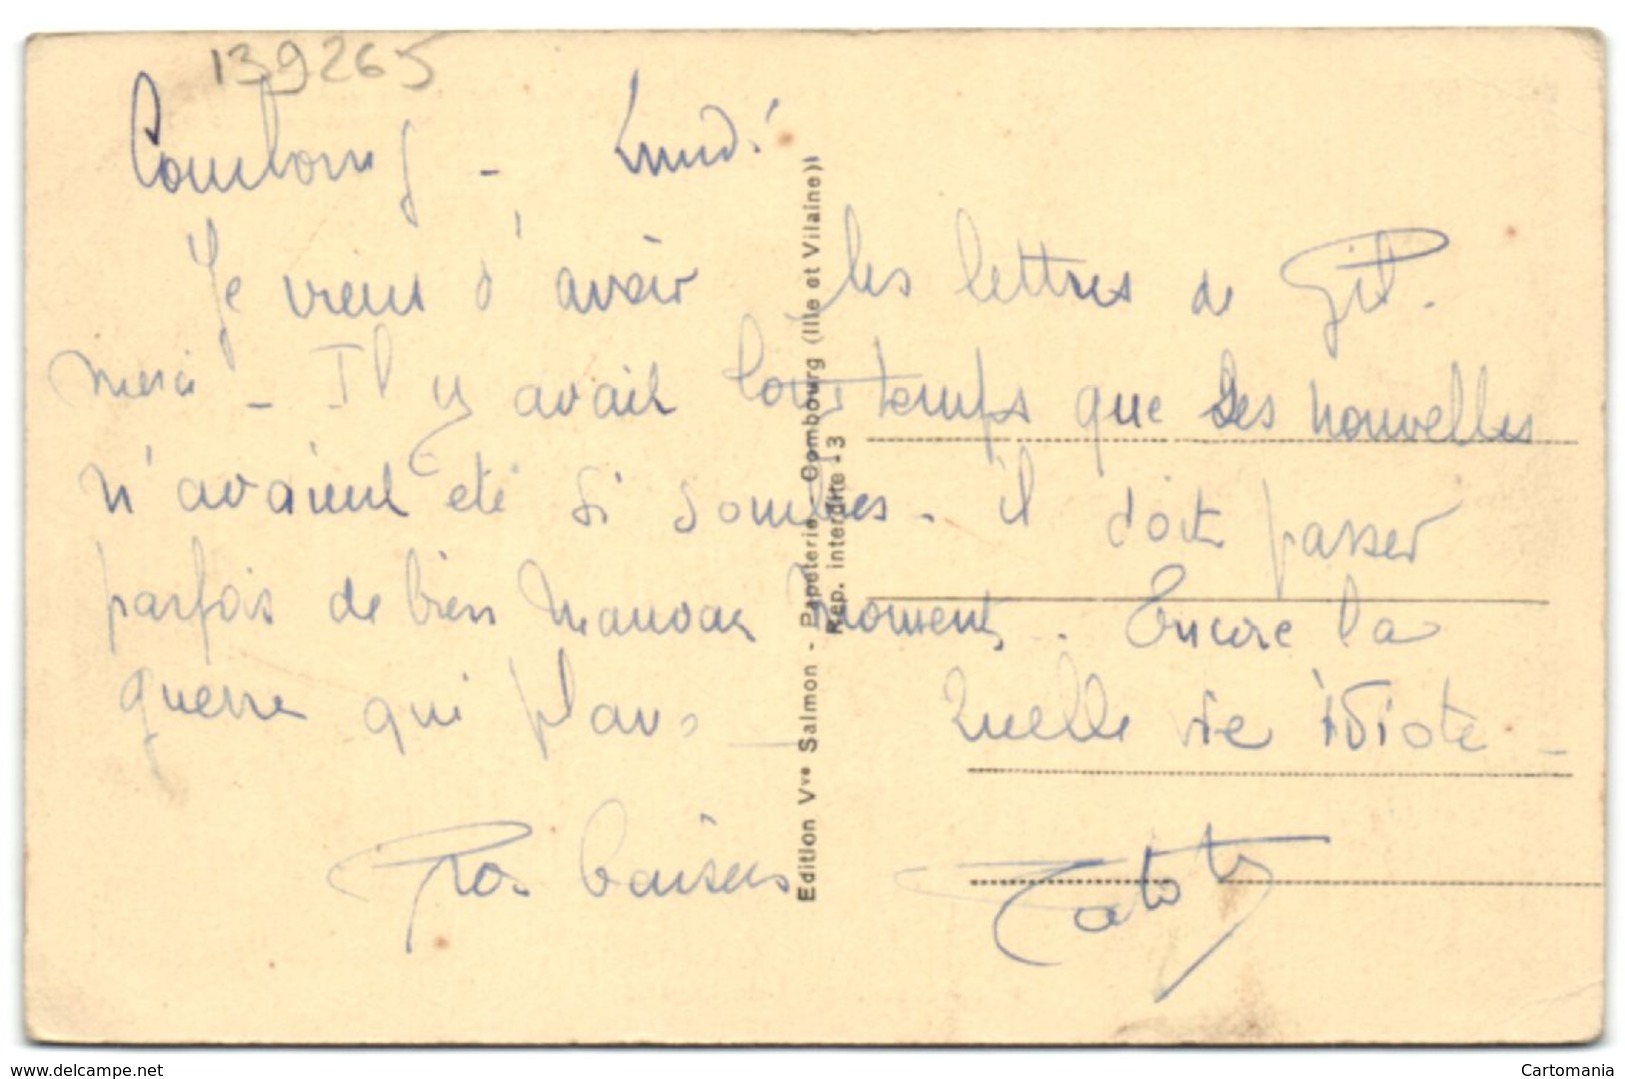 139265
Combourg - Lundi
Je viens d'avoir les lettres de Gil.
Merci - Il y avait longtemps que ses nouvelles
n'avaient été si sombres. il doit passer
parfois de bien mauvais moments. Encore la
guerre qui
Quelle vie idiote -
Gros baisers
Edition Vve Salmon - Papeterie - Combourg (Ille et Vilaine)
Rep. interdite - 3
www.delcampe.net
Cartomania